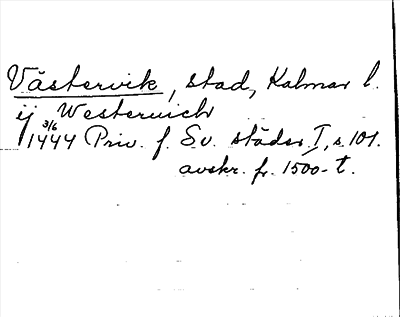 Västervik, stad, Kalmar l.
ij Westerwich
3/6 1444 Priv. f. Sv. städer I, s. 101.
avskr. fr. 1500-t.